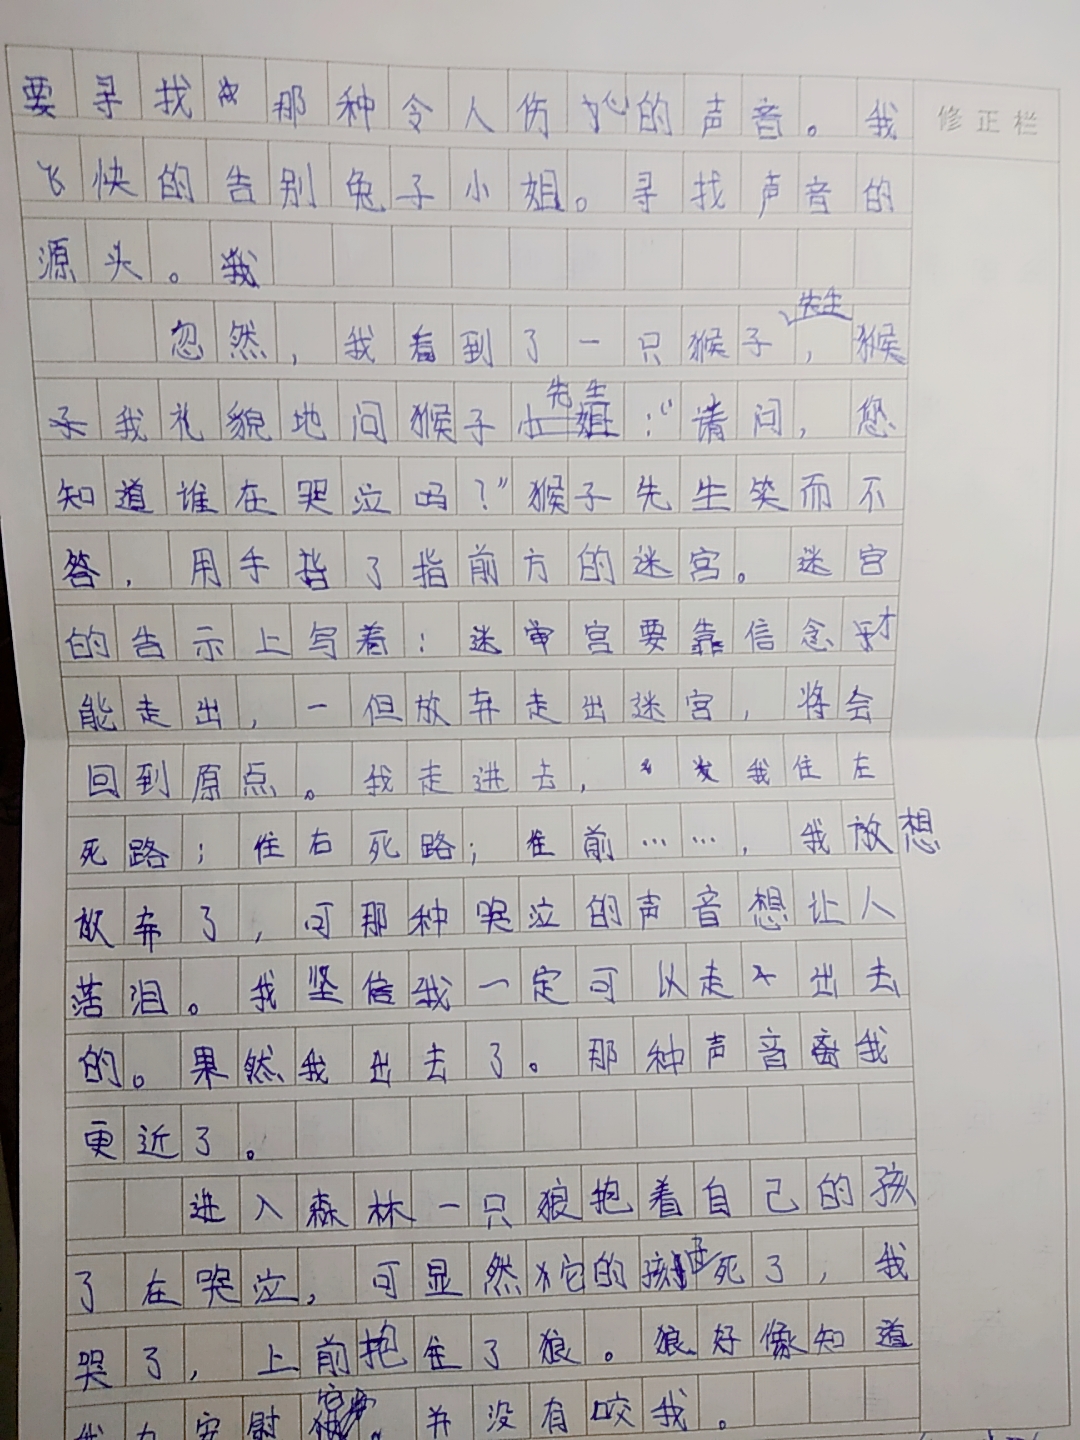 要寻找那种令人伤心的声音。我
修正栏
飞快的告别兔子小姐。寻找声音的
源头。我
忽然，我看到了一只猴子先生，猴
我礼貌地问猴子先生：“请问，您
知道谁在哭泣吗？”猴子先生笑而不
答，用手指了指前方的迷宫。迷宫
的告示上写着：迷宫要靠信念才
能走出，一但放弃走出迷宫，将会
回到原点。我走进去，发我住左
死路；住右死路；住前……，我放想
放弃了，可那种哭泣的声音想让人
落泪。我坚信我一定可以走出去
的。果然我出去了。那种声音离我
更近了。
进入森林一只狼抱着自己的孩
了在哭泣，可显然它的孩子死了，我
哭了，上前抱住了狼。狼好像知道
我在安慰，并没有咬我。